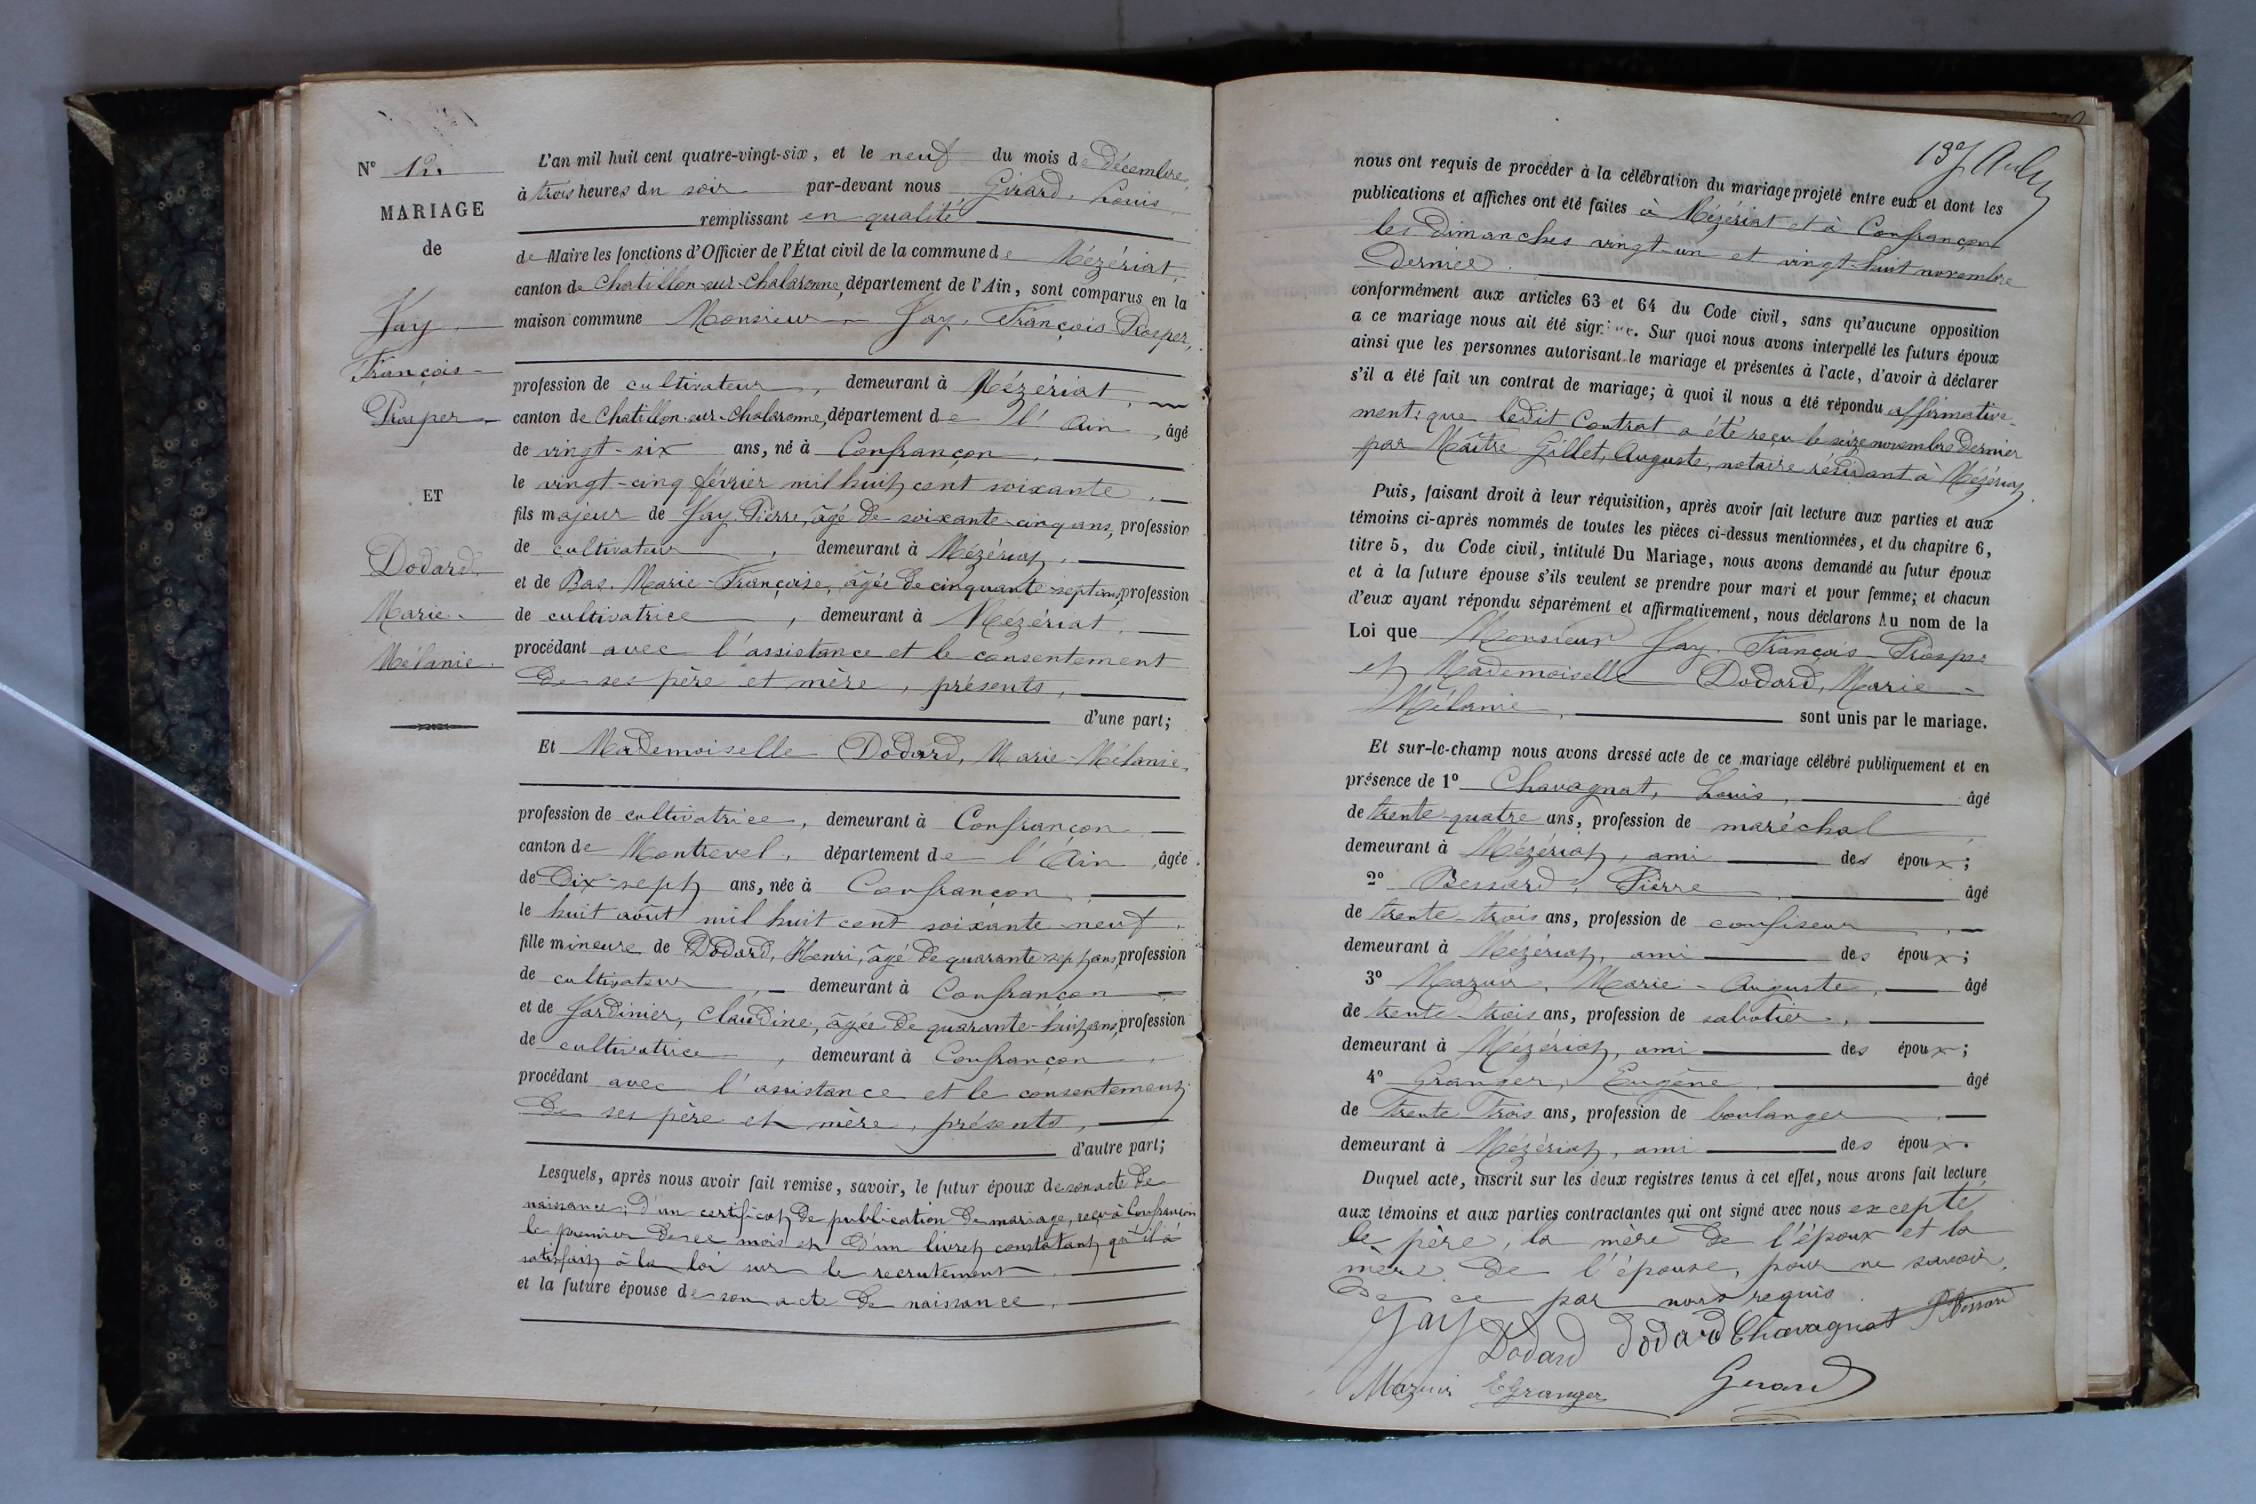 N° 12.
MARIAGE
de
Jay.
François-
Prosper
ET
Dodard
Marie-
Mélanie.
L'an mil huit cent quatre-vingt-six, et le neuf du mois de décembre,
à trois heures du soir par-devant nous Girard, Louis
remplissant en qualité
de Maire les fonctions d'Officier de l'État civil de la commune de Mézériat,
canton de Chatillon-sur-Chalaronne, département de l'Ain, sont comparus en la
maison commune Monsieur Jay, François Prosper,
profession de cultivateur, demeurant à Mézériat,
canton de Chatillon-sur-Chalaronne, département de l'Ain, âgé
de vingt-six ans, né à Confrançon,
le vingt-cinq février mil huit cent soixante,
fils majeur de Jay, Pierre, âgé de soixante-cinq ans, profession
de cultivateur, demeurant à Mézériat,
et de Bas, Marie-Françoise, âgée de cinquante-sept ans, profession
de cultivatrice, demeurant à Mézériat,
procédant avec l'assistance et le consentement
de ses père et mère, présents,
d'une part;
Et Mademoiselle Dodard, Marie-Mélanie,
profession de cultivatrice, demeurant à Confrançon
canton de Montrevel, département de l'Ain, âgée
de dix-sept ans, née à Confrançon,
le huit août mil huit cent soixante-neuf,
fille mineure de Dodard, Henri, âgé de quarante-sept ans, profession
de cultivateur, demeurant à Confrançon
et de Jardinier, Claudine, âgée de quarante-huit ans, profession
de cultivatrice, demeurant à Confrançon,
procédant avec l'assistance et le consentement
de ses père et mère, présents,
d'autre part;
Lesquels, après nous avoir fait remise, savoir, le futur époux de son acte de
naissance, d'un certificat de publication de mariage, reçu à Confrançon
le premier de ce mois et d'un livret constatant qu'il a
satisfait à la loi sur le recrutement,
et la future épouse de son acte de naissance,
137
nous ont requis de procéder à la célébration du mariage projeté entre eux et dont les
publications et affiches ont été faites à Mézériat et à Confrançon
les dimanches vingt-un et vingt-huit novembre
dernier.
conformément aux articles 63 et 64 du Code civil, sans qu'aucune opposition
a ce mariage nous ait été signifiée. Sur quoi nous avons interpellé les futurs époux
ainsi que les personnes autorisant le mariage et présentes à l'acte, d'avoir à déclarer
s'il a été fait un contrat de mariage; à quoi il nous a été répondu affirmative-
ment: que ledit Contrat a été reçu le seize novembre dernier
par Maître Gillet, Auguste, notaire résidant à Mézériat.
Puis, faisant droit à leur réquisition, après avoir fait lecture aux parties et aux
témoins ci-après nommés de toutes les pièces ci-dessus mentionnées, et du chapitre 6,
titre 5, du Code civil, intitulé Du Mariage, nous avons demandé au futur époux
et à la future épouse s'ils veulent se prendre pour mari et pour femme; et chacun
d'eux ayant répondu séparément et affirmativement, nous déclarons Au nom de la
Loi que Monsieur Jay, François-Prosper
et Mademoiselle Dodard, Marie-
Mélanie, sont unis par le mariage.
Et sur-le-champ nous avons dressé acte de ce mariage célébré publiquement et en
présence de 1° Chavagnat, Louis, âgé
de trente-quatre ans, profession de maréchal
demeurant à Mézériat, ami des époux;
2° Bessard, Pierre âgé
de trente-trois ans, profession de confiseur
demeurant à Mézériat, ami des époux;
3° Mazuir, Marie-Auguste, âgé
de trente-trois ans, profession de sabotier,
demeurant à Mézériat, ami des époux;
4° Granger, Eugène, âgé
de trente trois ans, profession de boulanger
demeurant à Mézériat, ami des époux.
Duquel acte, inscrit sur les deux registres tenus à cet effet, nous avons fait lecture
aux témoins et aux parties contractantes qui ont signé avec nous excepté
le père, la mère de l'époux et la
mère de l'épouse, pour ne savoir,
de ce par nous requis.
Jay Dodard Dodard Chavagnat P Bessard
Mazuir E Granger Girard